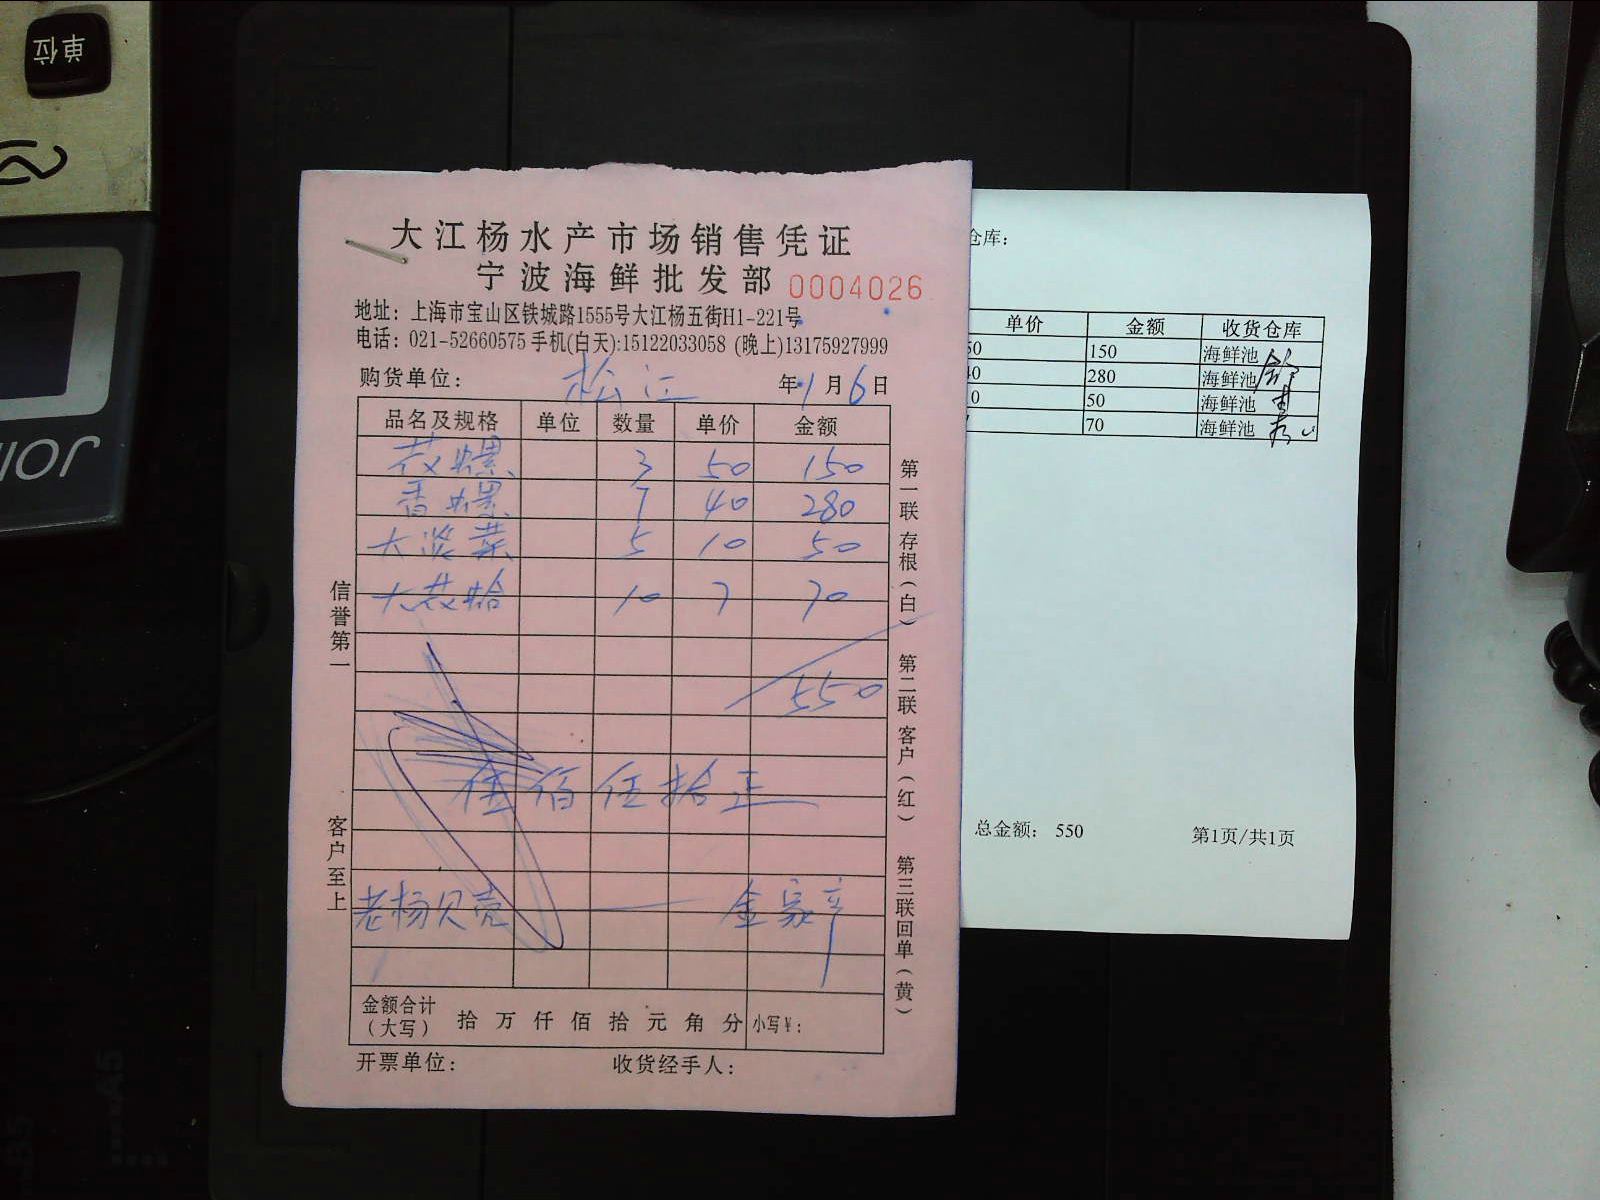 单位
大江杨水产市场销售凭证
宁波海鲜批发部 0004026
地址：上海市宝山区铁城路1555号大江杨五街H1-221号
电话：021-52660575 手机(白天):15122033058 (晚上)13175927999
购货单位： 松江 年1月6日
品名及规格 单位 数量 单价 金额
花螺 3 50 150
香螺 7 40 280
大淡菜 5 10 50
大花蛤 10 7 70
550
伍佰伍拾正
老杨贝壳 — 金家
金额合计（大写） 拾 万 仟 佰 拾 元 角 分 小写￥：
开票单位： 收货经手人：
信誉第一
客户至上
第一联存根（白）
第二联客户（红）
第三联回单（黄）
仓库：
单价 金额 收货仓库
50 150 海鲜池
40 280 海鲜池
0 50 海鲜池
70 海鲜池
总金额： 550 第1页/共1页
JOIN
A5
B5